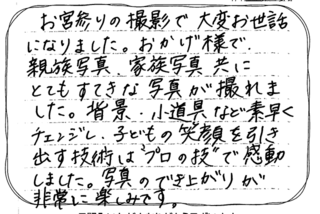 お宮参りの撮影で大変お世話
になりました。おかげ様で、
親族写真、家族写真共に
とてもすてきな写真が撮れま
した。背景、小道具など素早く
チェンジし、子どもの笑顔を引き
出す技術は"プロの技"で感動
しました。写真のでき上がりが
非常に楽しみです。